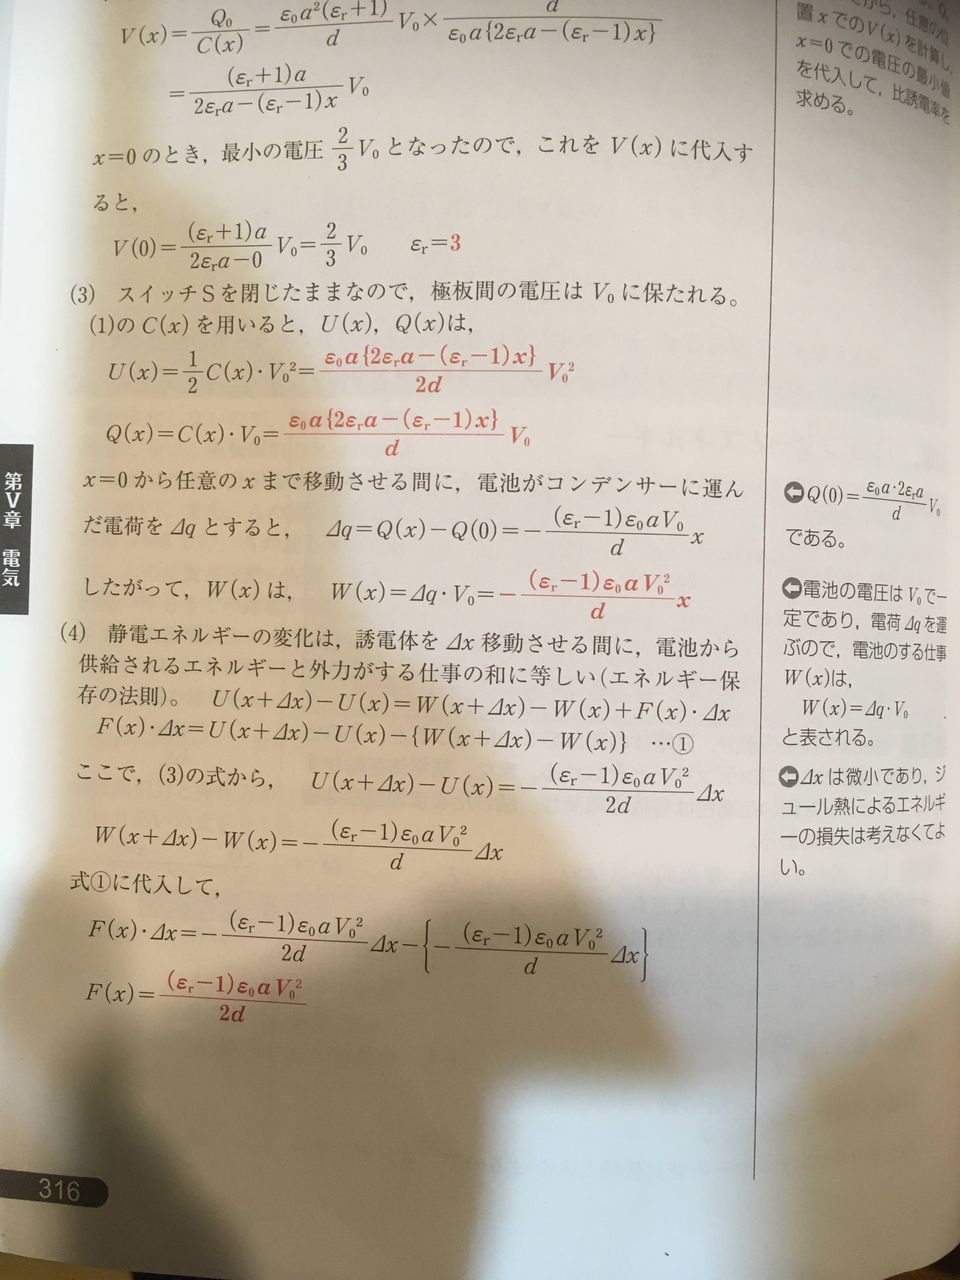 V(x)=Q₀/C(x)=ε₀a²(εᵣ+1)/d V₀×d/ε₀a{2εᵣa−(εᵣ−1)x}
=(εᵣ+1)a/2εᵣa−(εᵣ−1)x V₀
x=0のとき，最小の電圧 2/3 V₀ となったので，これを V(x) に代入す
ると，
V(0)=(εᵣ+1)a/2εᵣa−0 V₀=2/3 V₀ εᵣ=3
(3) スイッチSを閉じたままなので，極板間の電圧は V₀ に保たれる。
(1)の C(x) を用いると，U(x)，Q(x)は，
U(x)=1/2 C(x)·V₀²=ε₀a{2εᵣa−(εᵣ−1)x}/2d V₀²
Q(x)=C(x)·V₀=ε₀a{2εᵣa−(εᵣ−1)x}/d V₀
x=0から任意の x まで移動させる間に，電池がコンデンサーに運ん
だ電荷を Δq とすると， Δq=Q(x)−Q(0)=−(εᵣ−1)ε₀aV₀/d x
したがって，W(x) は， W(x)=Δq·V₀=−(εᵣ−1)ε₀aV₀²/d x
(4) 静電エネルギーの変化は，誘電体を Δx 移動させる間に，電池から
供給されるエネルギーと外力がする仕事の和に等しい(エネルギー保
存の法則)。 U(x+Δx)−U(x)=W(x+Δx)−W(x)+F(x)·Δx
F(x)·Δx=U(x+Δx)−U(x)−{W(x+Δx)−W(x)} …①
ここで，(3)の式から， U(x+Δx)−U(x)=−(εᵣ−1)ε₀aV₀²/2d Δx
W(x+Δx)−W(x)=−(εᵣ−1)ε₀aV₀²/d Δx
式①に代入して，
F(x)·Δx=−(εᵣ−1)ε₀aV₀²/2d Δx−{−(εᵣ−1)ε₀aV₀²/d Δx}
F(x)=(εᵣ−1)ε₀aV₀²/2d
から，任意の位
置 x での V(x) を計算し，
x=0での電圧の最小値
を代入して，比誘電率を
求める。
Q(0)=ε₀a·2εᵣa/d V₀
である。
電池の電圧は V₀ で一
定であり，電荷 Δq を運
ぶので，電池のする仕事
W(x)は，
W(x)=Δq·V₀
と表される。
Δx は微小であり，ジ
ュール熱によるエネルギ
ーの損失は考えなくてよ
い。
第Ⅴ章 電気
316